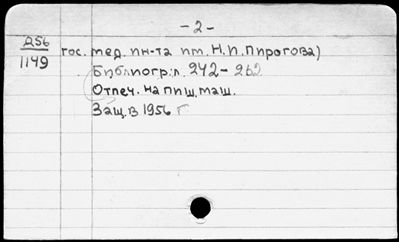 - 2 -
Д56 гос. мед. ин-та им. Н.И. Пирогова)
1149
Библиогр: л. 242 - 262
Отпеч. на пиш. маш.
Защ. в 1956 г